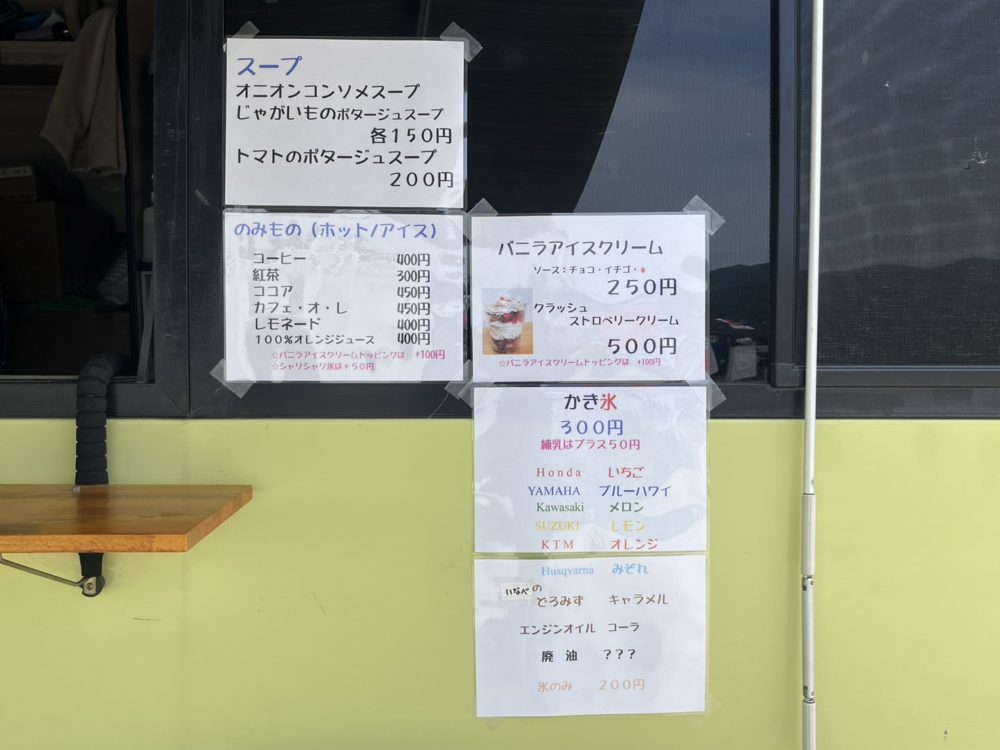 スープ
オニオンコンソメスープ
じゃがいものポタージュスープ
各150円
トマトのポタージュスープ
200円
のみもの（ホット/アイス）
コーヒー 400円
紅茶 300円
ココア 450円
カフェ・オ・レ 450円
レモネード 400円
100%オレンジジュース 400円
☆バニラアイスクリームトッピングは +100円
☆シャリシャリ氷は+50円
バニラアイスクリーム
ソース：チョコ・イチゴ・
250円
クラッシュ
ストロベリークリーム
500円
☆バニラアイスクリームトッピングは +100円
かき氷
300円
練乳はプラス50円
Honda いちご
YAMAHA ブルーハワイ
Kawasaki メロン
SUZUKI レモン
KTM オレンジ
Husqvarna みぞれ
いなべの
どろみず キャラメル
エンジンオイル コーラ
廃油 ???
氷のみ 200円